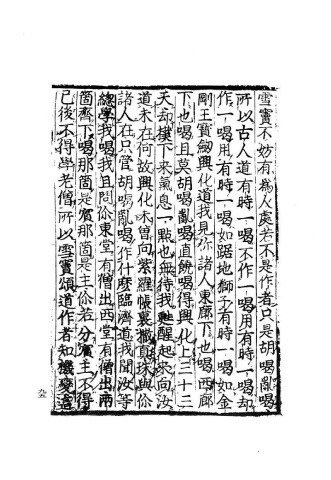 雪竇不妨有為人處若不是作者只是胡喝亂喝
所以古人道有時一喝不作一喝用有時一喝却
作一喝用有時一喝如踞地獅子有時一喝如金
剛王寶劍興化道我見你諸人東廊下也喝西廊
下也喝且莫胡喝亂喝直饒喝得興化上三十三
天却撲下來氣息一點也無待我甦醒起來向汝
道未在何故興化未曽向紫羅帳裏撒真珠與你
諸人在只管胡喝亂喝作什麽臨濟道我聞汝等
總學我喝我且問你東堂有僧出西堂有僧出兩
箇齊下喝那箇是賓那箇是主你若分賓主不得
已後不得學老僧所以雪竇頌道作者知機變這